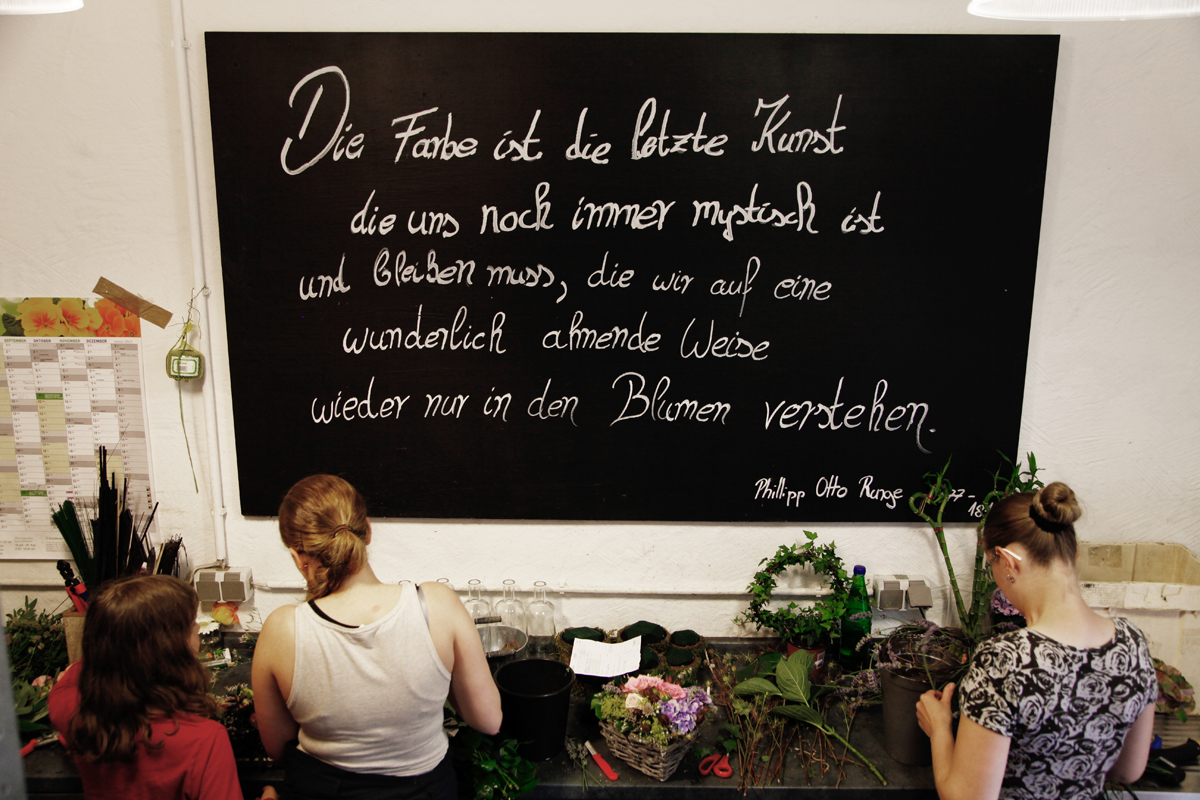 Die Farbe ist die letzte Kunst
die uns noch immer mystisch ist
und bleiben muss, die wir auf eine
wunderlich ahnende Weise
wieder nur in den Blumen verstehen.
Phillipp Otto Runge
SEPTEMBER OKTOBER NOVEMBER DEZEMBER